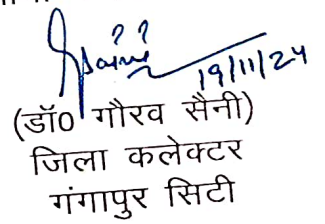 19/11/24
(डॉ0 गौरव सैनी)
जिला कलेक्टर
गंगापुर सिटी